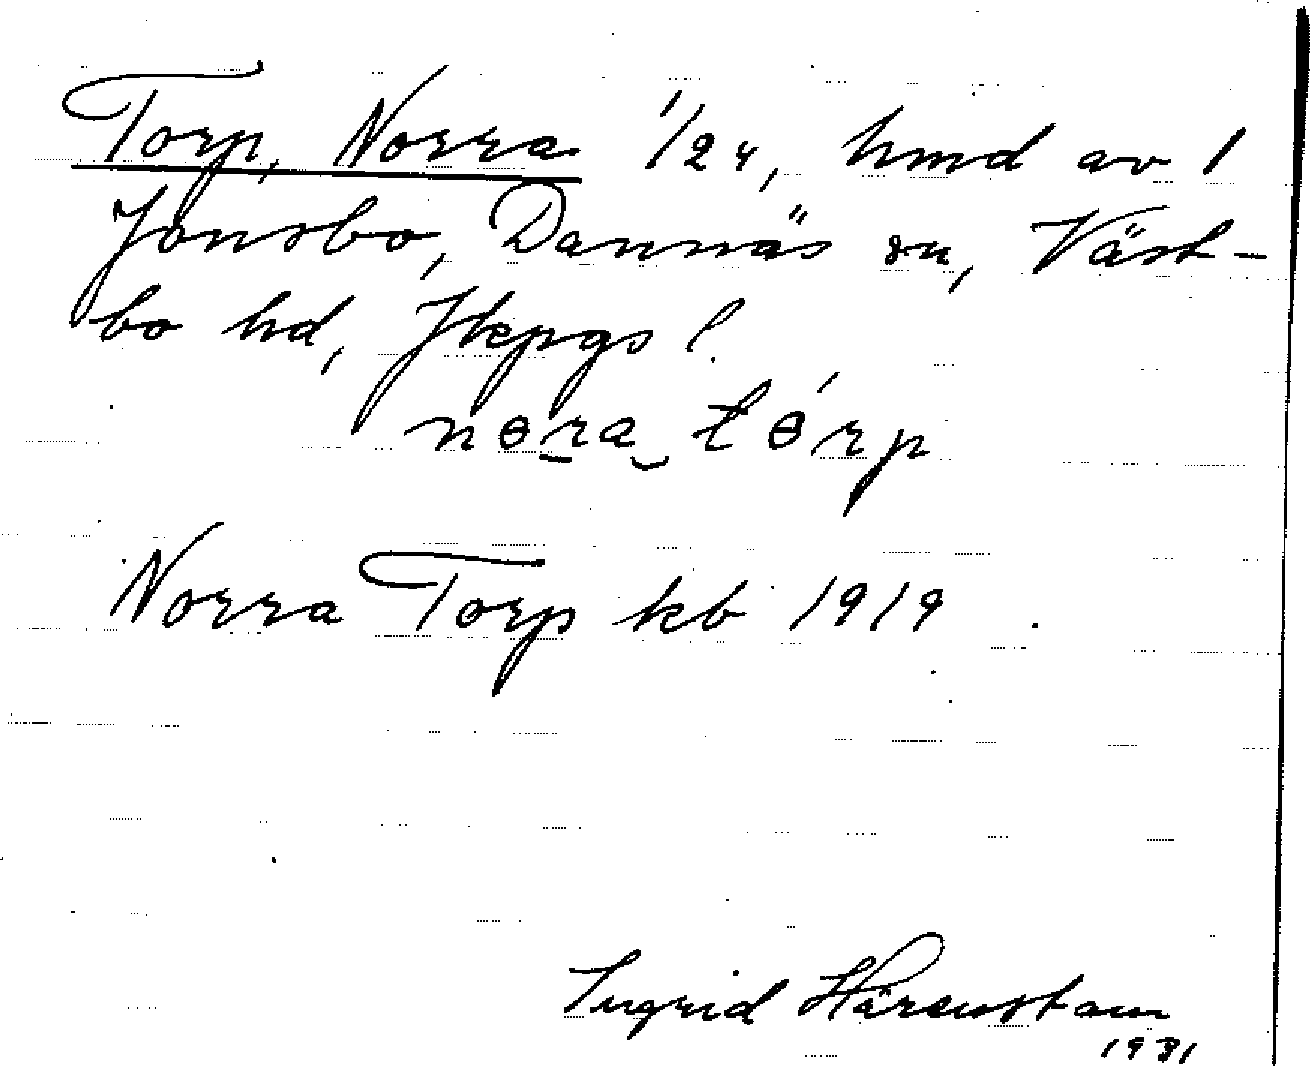 Torp, Norra 1/24, hmd av 1
Jonsbo, Dannäs sn, Väst-
bo hd, Jkpgs l.
nɵra tɵ́rp
Norra Torp kb 1919
Ingrid Härenstam
1931